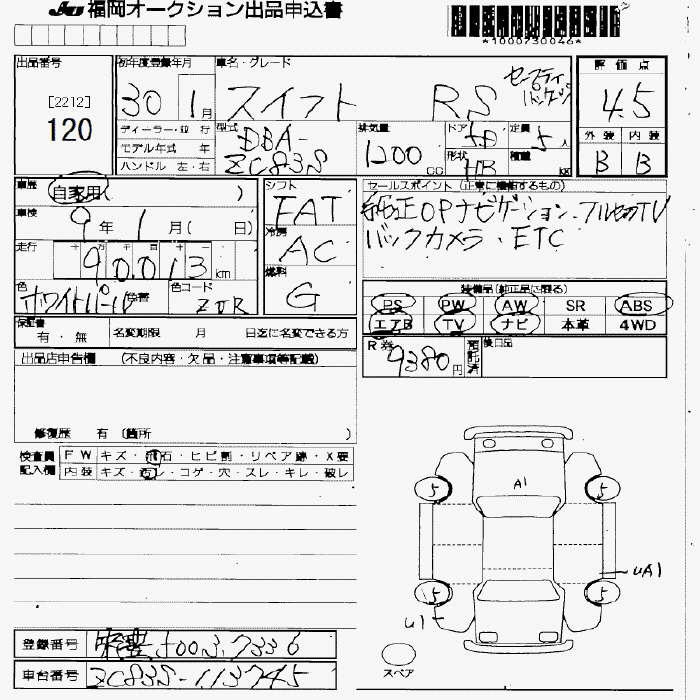 JU 福岡オークション出品申込書
*1000730046*
出品番号
[2212]
120
初年度登録年月
30 1月
ディーラー・並行
モデル年式 年
ハンドル 左・右
車名・グレード
スイフト RS セーフティパッケージ
型式 DBA-ZC83S
排気量 1200 CC
ドア 5D
形状 HB
定員 5人
積載 KG
評価点
4.5
外装 内装
B B
車歴 自家用( )
車検 9年 1月( 日)
走行 十 万 千 百 十
90,013 km
色 ホワイトパール 色替
色コード ZVR
シフト FAT
冷房 AC
燃料 G
セールスポイント (正常に機能するもの)
純正OPナビゲーション・フルセグTV
バックカメラ・ETC
装備品(純正品に限る)
PS PW AW SR ABS
エアB TV ナビ 本革 4WD
保証書 有・無 名変期限 月 日迄に名変できる方
R券 9380円 預託済 後日品
出品店申告欄 (不良内容・欠品・注意事項等記載)
修復歴 有 (箇所 )
検査員記入欄
FW キズ・飛石・ヒビ割・リペア跡・X要
内装 キズ・汚レ・コゲ・穴・スレ・キレ・破レ
5 A1 5
UA1
5 5
U1
スペア
登録番号 7336
車台番号 ZC83S-113745